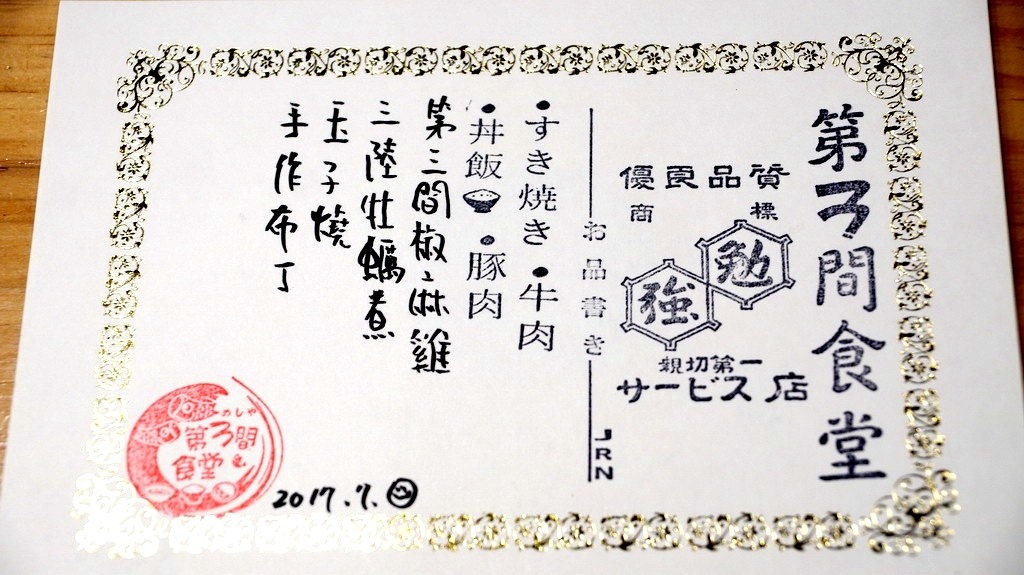 第3間食堂
優良品質
商標
勉強
親切第一
サービス店
お品書き
JRN
•すき焼き•牛肉
•丼飯•豚肉
第三間椒麻雞
三陸牡蠣煮
玉子燒
手作布丁
かしや
第3間
食堂
2017.7.